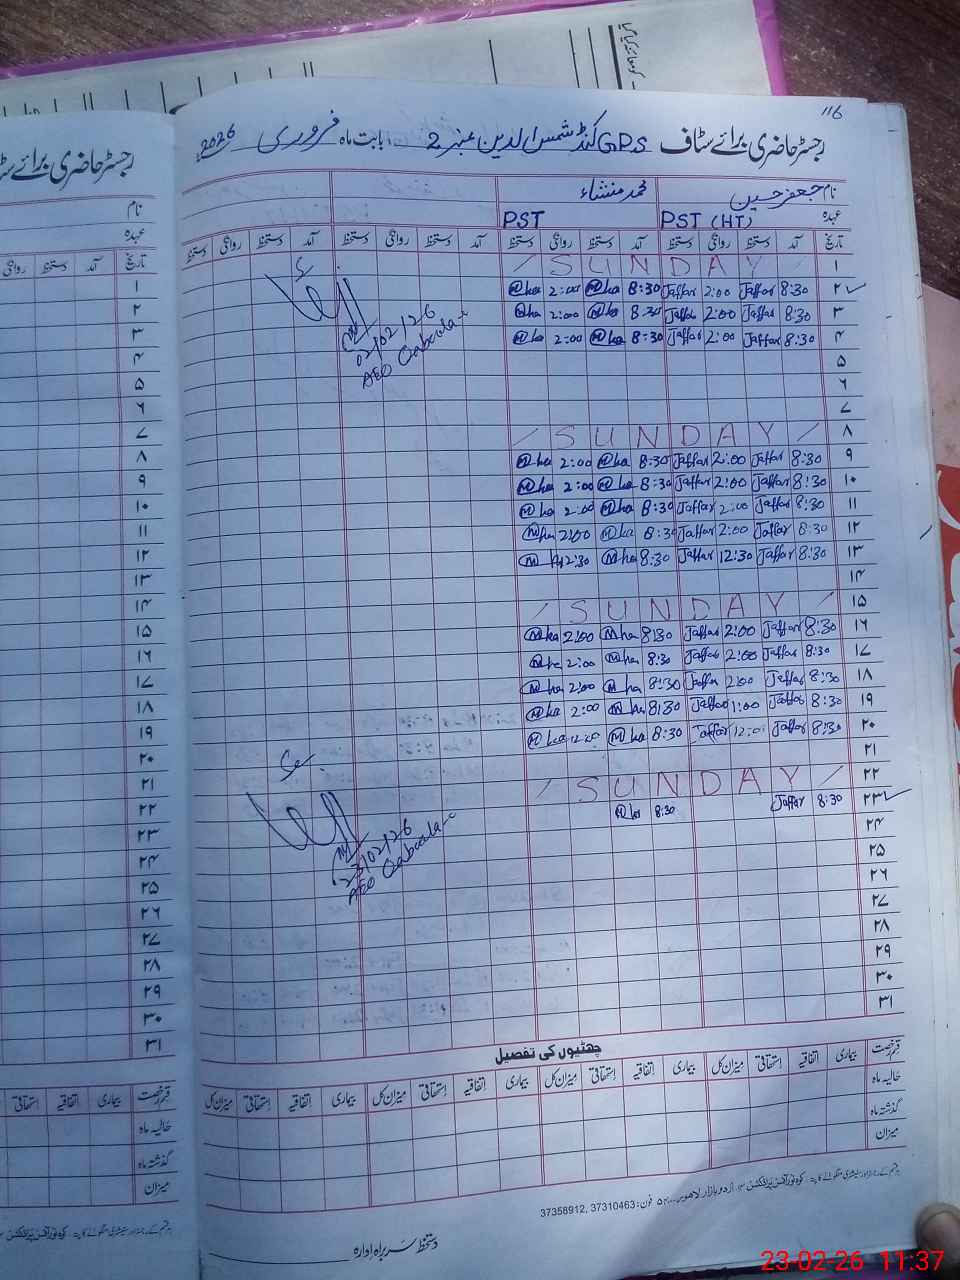 116
رجسٹر حاضری برائے سٹاف GPS کنڈ شمس الدین نمبر 2 بابت ماہ فروری 2026
نام جعفر حسین محمد منشاء
عہدہ PST (HT) PST
تاریخ آمد دستخط روانگی دستخط آمد دستخط روانگی دستخط آمد دستخط روانگی دستخط آمد دستخط روانگی دستخط
۱ SUNDAY
۲ 8:30 Jaffar 2:00 Jaffar 8:30 2:00
۳ 8:30 Jaffar 2:00 Jaffar 8:30 2:00
۴ 8:30 Jaffar 2:00 Jaffar 8:30 2:00
۵
۶
۷
۸ SUNDAY
۹ 8:30 Jaffar 2:00 Jaffar 8:30 2:00
۱۰ 8:30 Jaffar 2:00 Jaffar 8:30 2:00
۱۱ 8:30 Jaffar 2:00 Jaffar 8:30 2:00
۱۲ 8:30 Jaffar 2:00 Jaffar 8:30 2:00
۱۳ 8:30 Jaffar 12:30 Jaffar 8:30 12:30
۱۴
۱۵ SUNDAY
۱۶ 8:30 Jaffar 2:00 Jaffar 8:30 2:00
۱۷ 8:30 Jaffar 2:00 Jaffar 8:30 2:00
۱۸ 8:30 Jaffar 2:00 Jaffar 8:30 2:00
۱۹ 8:30 Jaffar 1:00 Jaffar 8:30 2:00
۲۰ 8:30 Jaffar Jaffar 8:30
۲۱
۲۲ SUNDAY
۲۳ 8:30 Jaffar 8:30
۲۴
۲۵
۲۶
۲۷
۲۸
۲۹
۳۰
۳۱
02/02/26
AEO Qaboola
23/02/26
AEO Qaboola
چھٹیوں کی تفصیل
قسم رخصت بیماری اتفاقیہ استحقاقی میزان کل بیماری اتفاقیہ استحقاقی میزان کل بیماری اتفاقیہ استحقاقی میزان کل
حالیہ ماہ
گذشتہ ماہ
میزان
اردو بازار لاہور۔ فون: 37310463, 37358912
دستخط سربراہ ادارہ
رجسٹر حاضری برائے
نام
عہدہ
تاریخ آمد دستخط روانگی
۱
۲
۳
۴
۵
۶
۷
۸
۹
۱۰
۱۱
۱۲
۱۳
۱۴
۱۵
۱۶
۱۷
۱۸
۱۹
۲۰
۲۱
۲۲
۲۳
۲۴
۲۵
۲۶
۲۷
۲۸
۲۹
۳۰
۳۱
قسم رخصت بیماری اتفاقیہ استحقاقی
حالیہ ماہ
گذشتہ ماہ
میزان
23-02-26 11:37